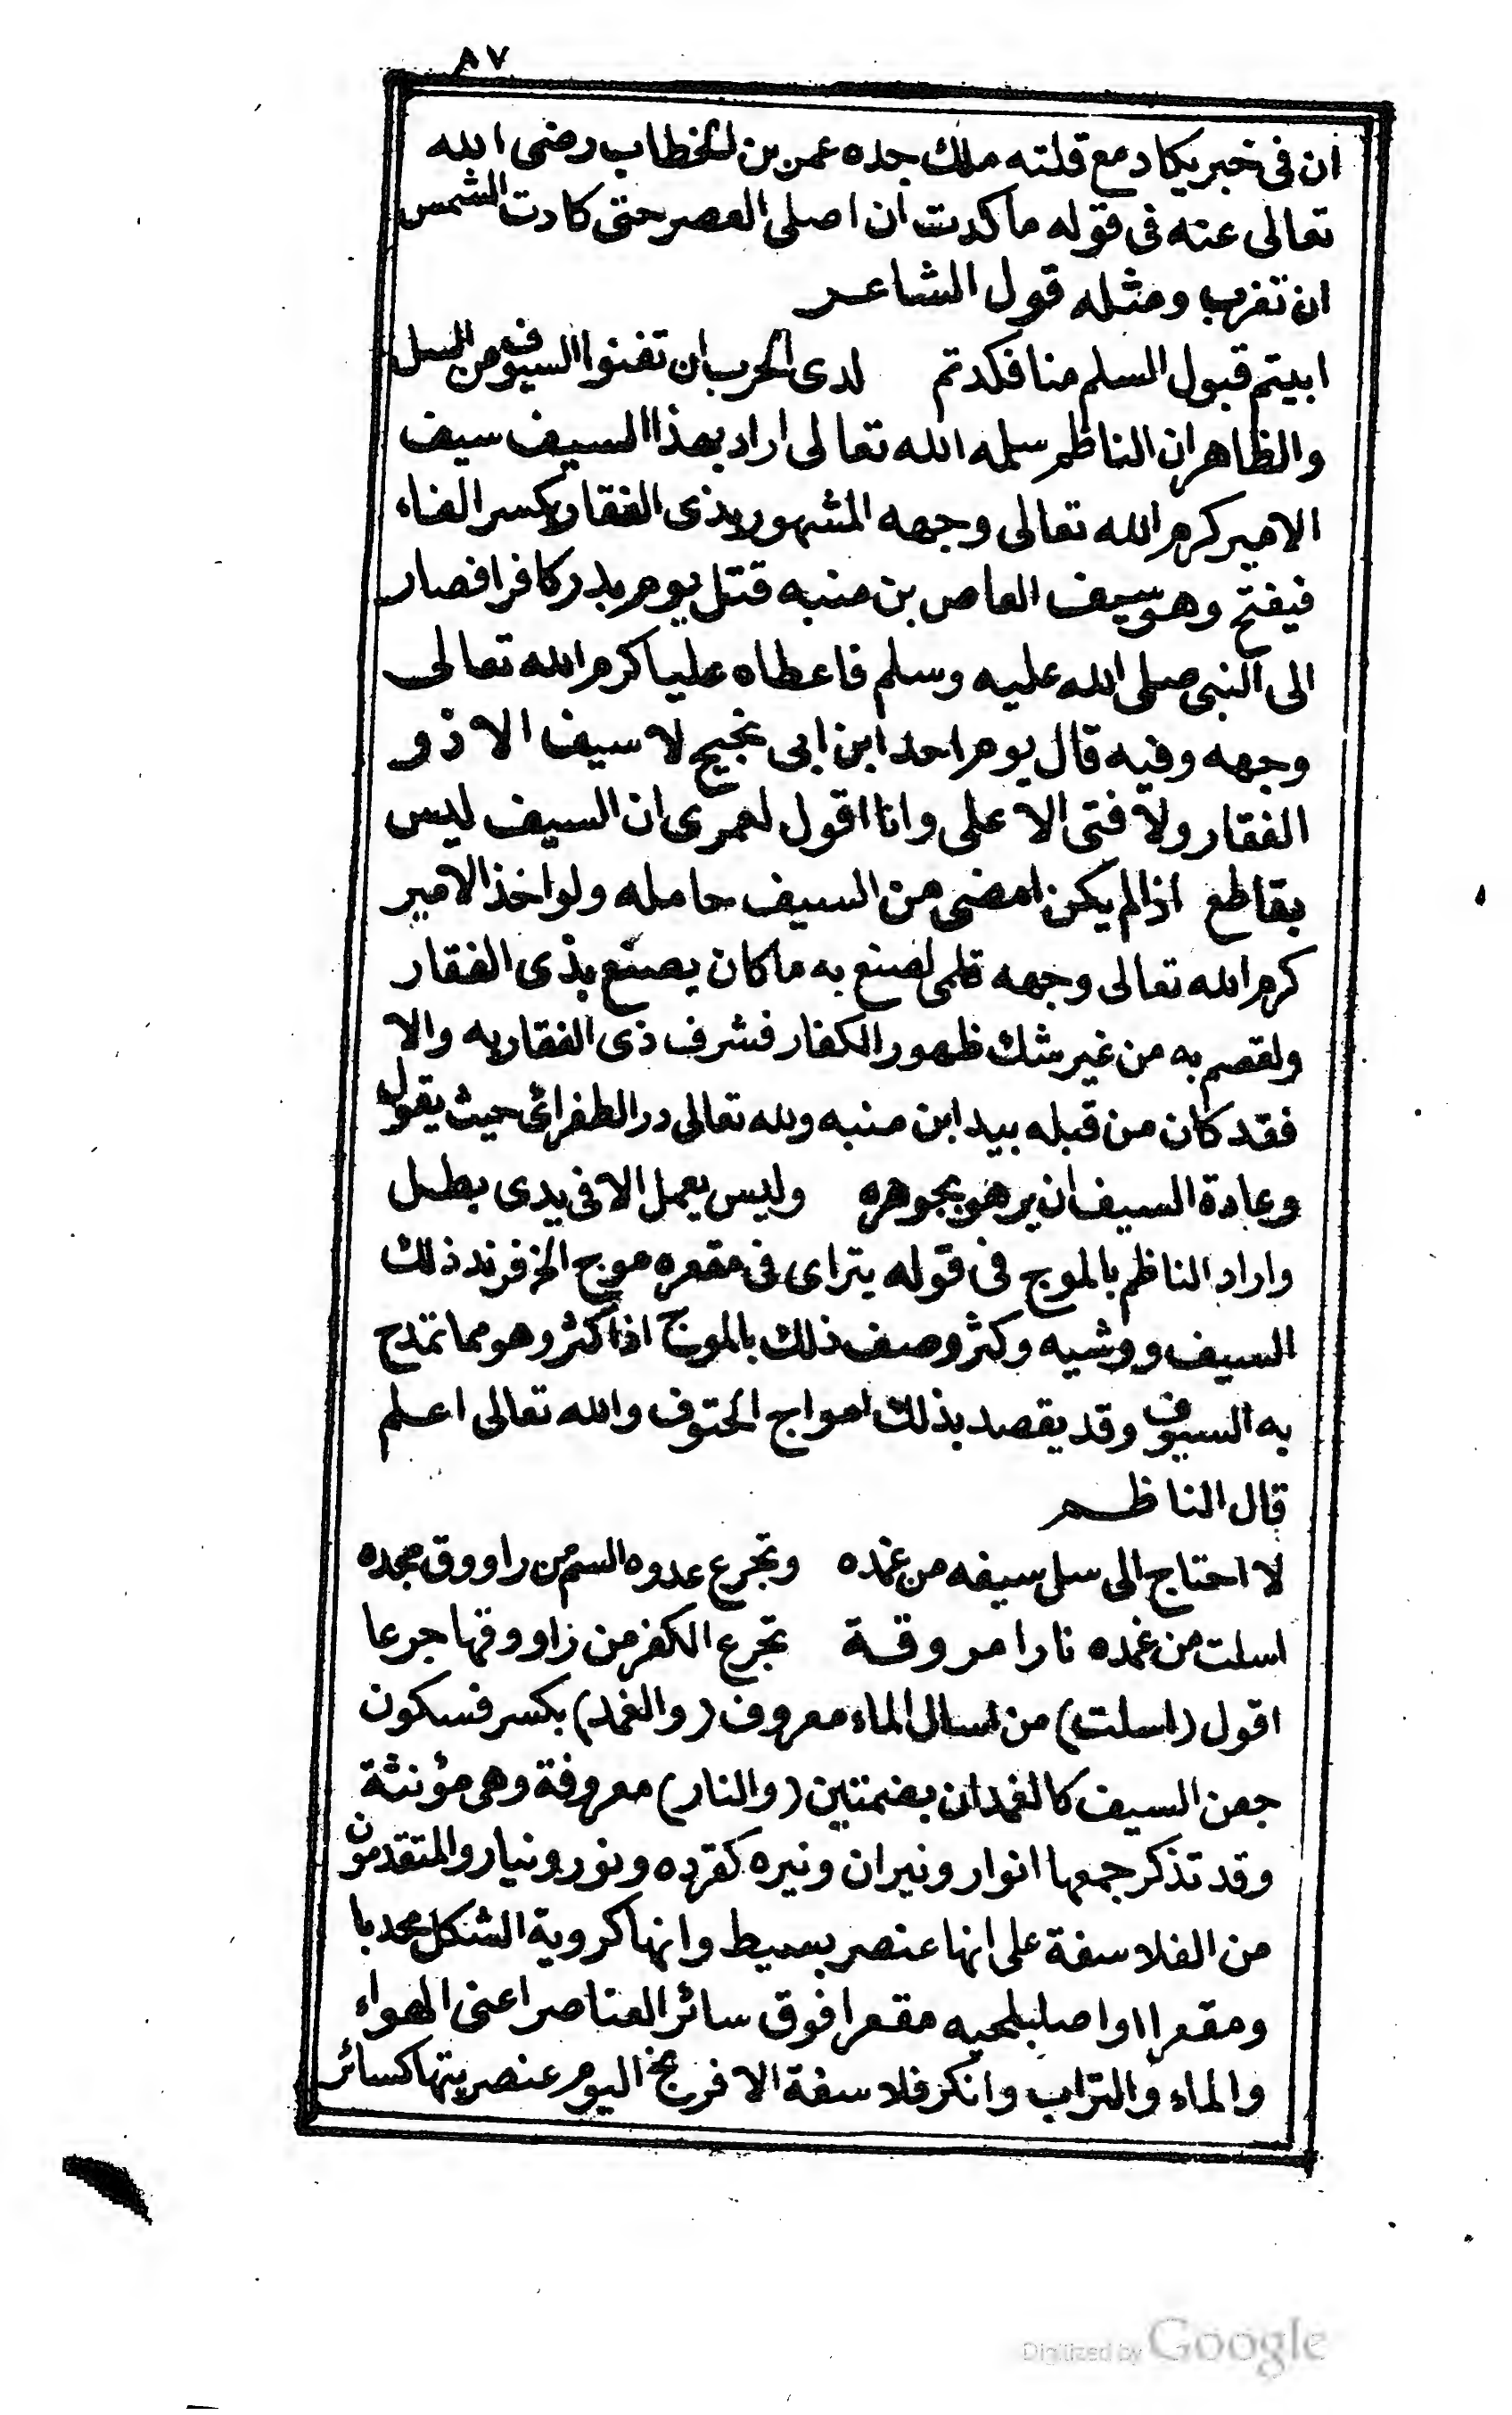 ٨٧
ان فى خبر يكاد مع قلته ملك جده عمر بن الخطاب رضى الله
تعالى عنه فى قوله ما كدت ان اصلى العصر حتى كادت الشمس
ان تغرب ومثله قول الشاعر
ابيتم قبول السلم منا فكدتم لدى الحرب ان تغنوا السيوف من السل
والظاهر ان الناظم سلمه الله تعالى اراد بهذا السيف سيف
الامير كرم الله تعالى وجهه المشهور بذى الفقار بكسر الفاء
فيفتح وهو سيف العاص بن منبه قتل يوم بدر كافرا فصار
الى النبى صلى الله عليه وسلم فاعطاه عليا كرم الله تعالى
وجهه وفيه قال يوم احد ابن ابى نجيح لا سيف الا ذو
الفقار ولا فتى الا على وانا اقول لعمرى ان السيف ليس
بقاطع اذا لم يكن امضى من السيف حامله ولو اخذ الامير
كرم الله تعالى وجهه قلمى لصنع به ما كان يصنع بذى الفقار
ولقصم به من غير شك ظهور الكفار فشرف ذى الفقار به والا
فقد كان من قبله بيد ابن منبه ولله تعالى در الطغرائى حيث يقول
وعادة السيف ان يزهو بجوهره وليس يعمل الا فى يدى بطل
واراد الناظم بالموج فى قوله يتراى فى مقعره موج الخ فرند ذلك
السيف ووشيه وكثر وصف ذلك بالموج اذا كثر وهو مما تمدح
به السيوف وقد يقصد بذلك امواج الحتوف والله تعالى اعلم
قال الناظم
لا احتاج الى سل سيفه من غمده وتجرع عدوه السم من راووق مجده
اسلت من غمده نارا مروقة تجرع الكفر من راووقها جرعا
اقول (اسلت) من اسال الماء معروف (والغمد) بكسر فسكون
جفن السيف كالغمدان بضمتين (والنار) معروفة وهى مؤنثة
وقد تذكر جمعها انوار ونيران ونيره كقرده ونور ونيار والمتقدمون
من الفلاسفة على انها عنصر بسيط وانها كروية الشكل محدبا
ومقعرا او اصليلحيه مقعرا فوق سائر العناصر اعنى الهواء
والماء والتراب وانكر فلاسفة الافرنج اليوم عنصريتها كسائر
Digitized by Google